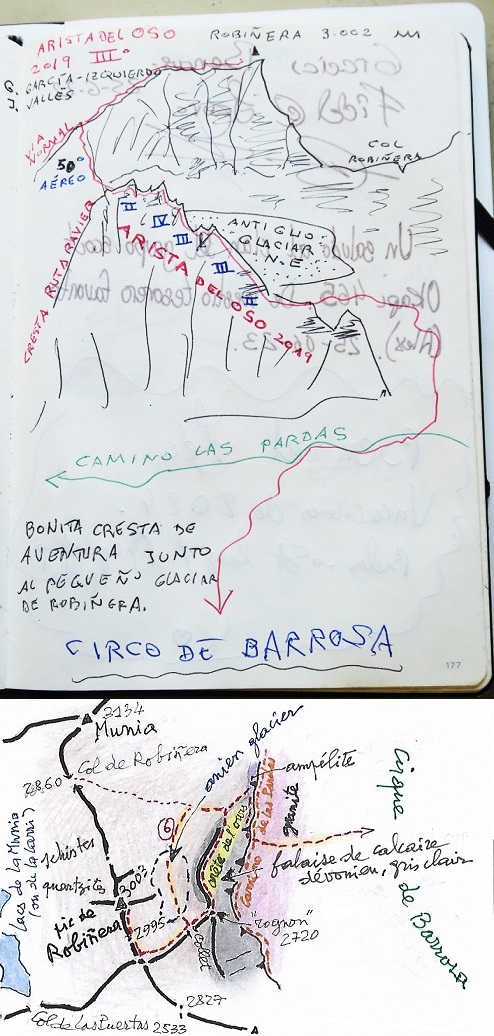 ARISTA DEL OSO
2019 IIIº
G. GARCÍA-IZQUIERDO
J. VALLÉS
ROBIÑERA 3.002 m
Gracias
VIA NORMAL
50º
AÉREO
COL
ROBIÑERA
ANTIGUO
GLACIAR
N.E.
II
IV
III
III
II
ARISTA DEL OSO 2019
CRESTA RUTA RAVIER
Un saludo
Okapi 465
tesorero
25-06-23.
CAMINO LAS PARDAS
BONITA CRESTA DE
AVENTURA JUNTO
AL PEQUEÑO GLACIAR
DE ROBIÑERA.
CIRCO DE BARROSA
177
3134
Munia
Col de Robiñera
2860
ancien glacier
ampélite
Cirque
de Barrosa
Lacs de La Munia
schistes
quartzites
6
arête de l'ours
Camino de las Pardas
granite
falaise de calcaire
dévonien, gris clair
3003
pic de
Robiñera
2995
collet
"rognon"
2720
2827
Col de Las Puertas 2533